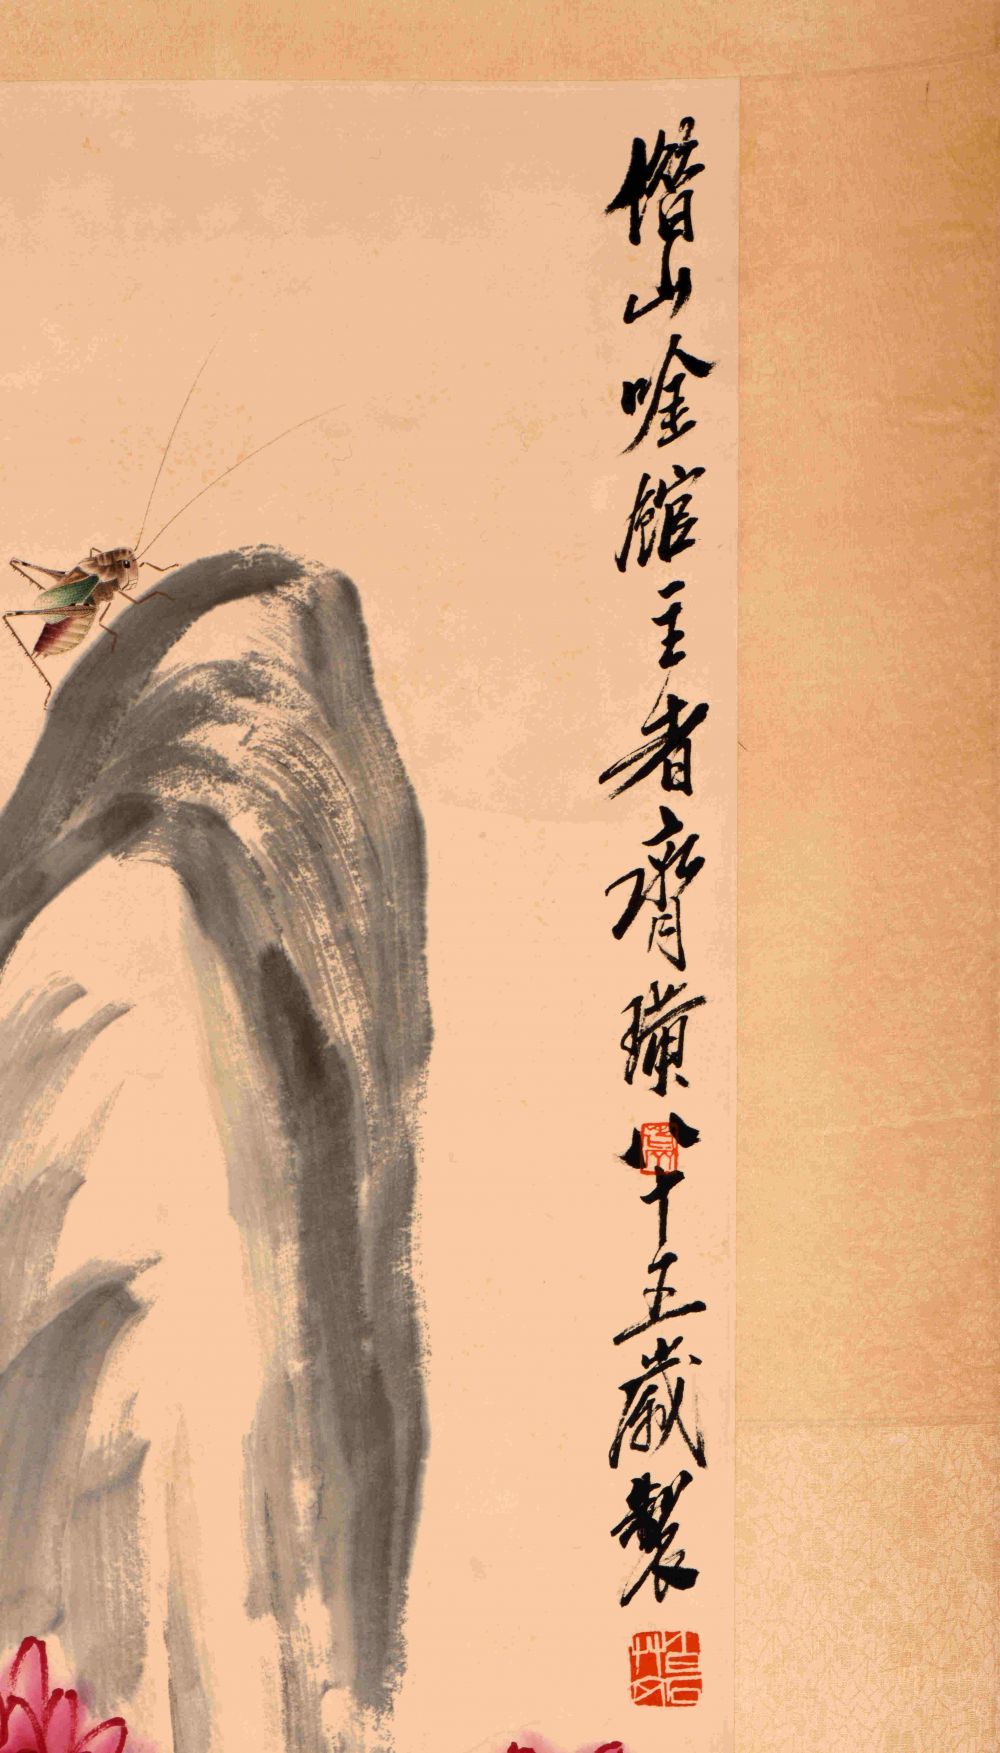 借山唫館主者齊璜八十五歲製